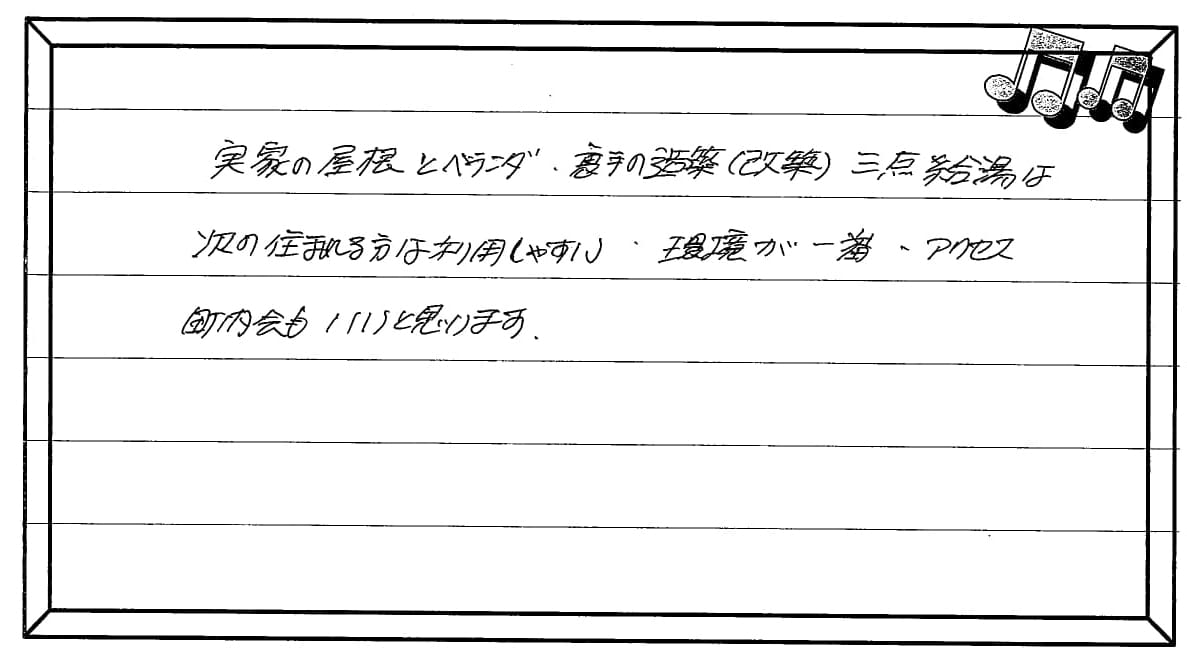 実家の屋根とベランダ、裏手の造築(改築)三点給湯は
次の住まれる方は利用しやすい、環境が一番、アクセス
町内会もいいと思います.